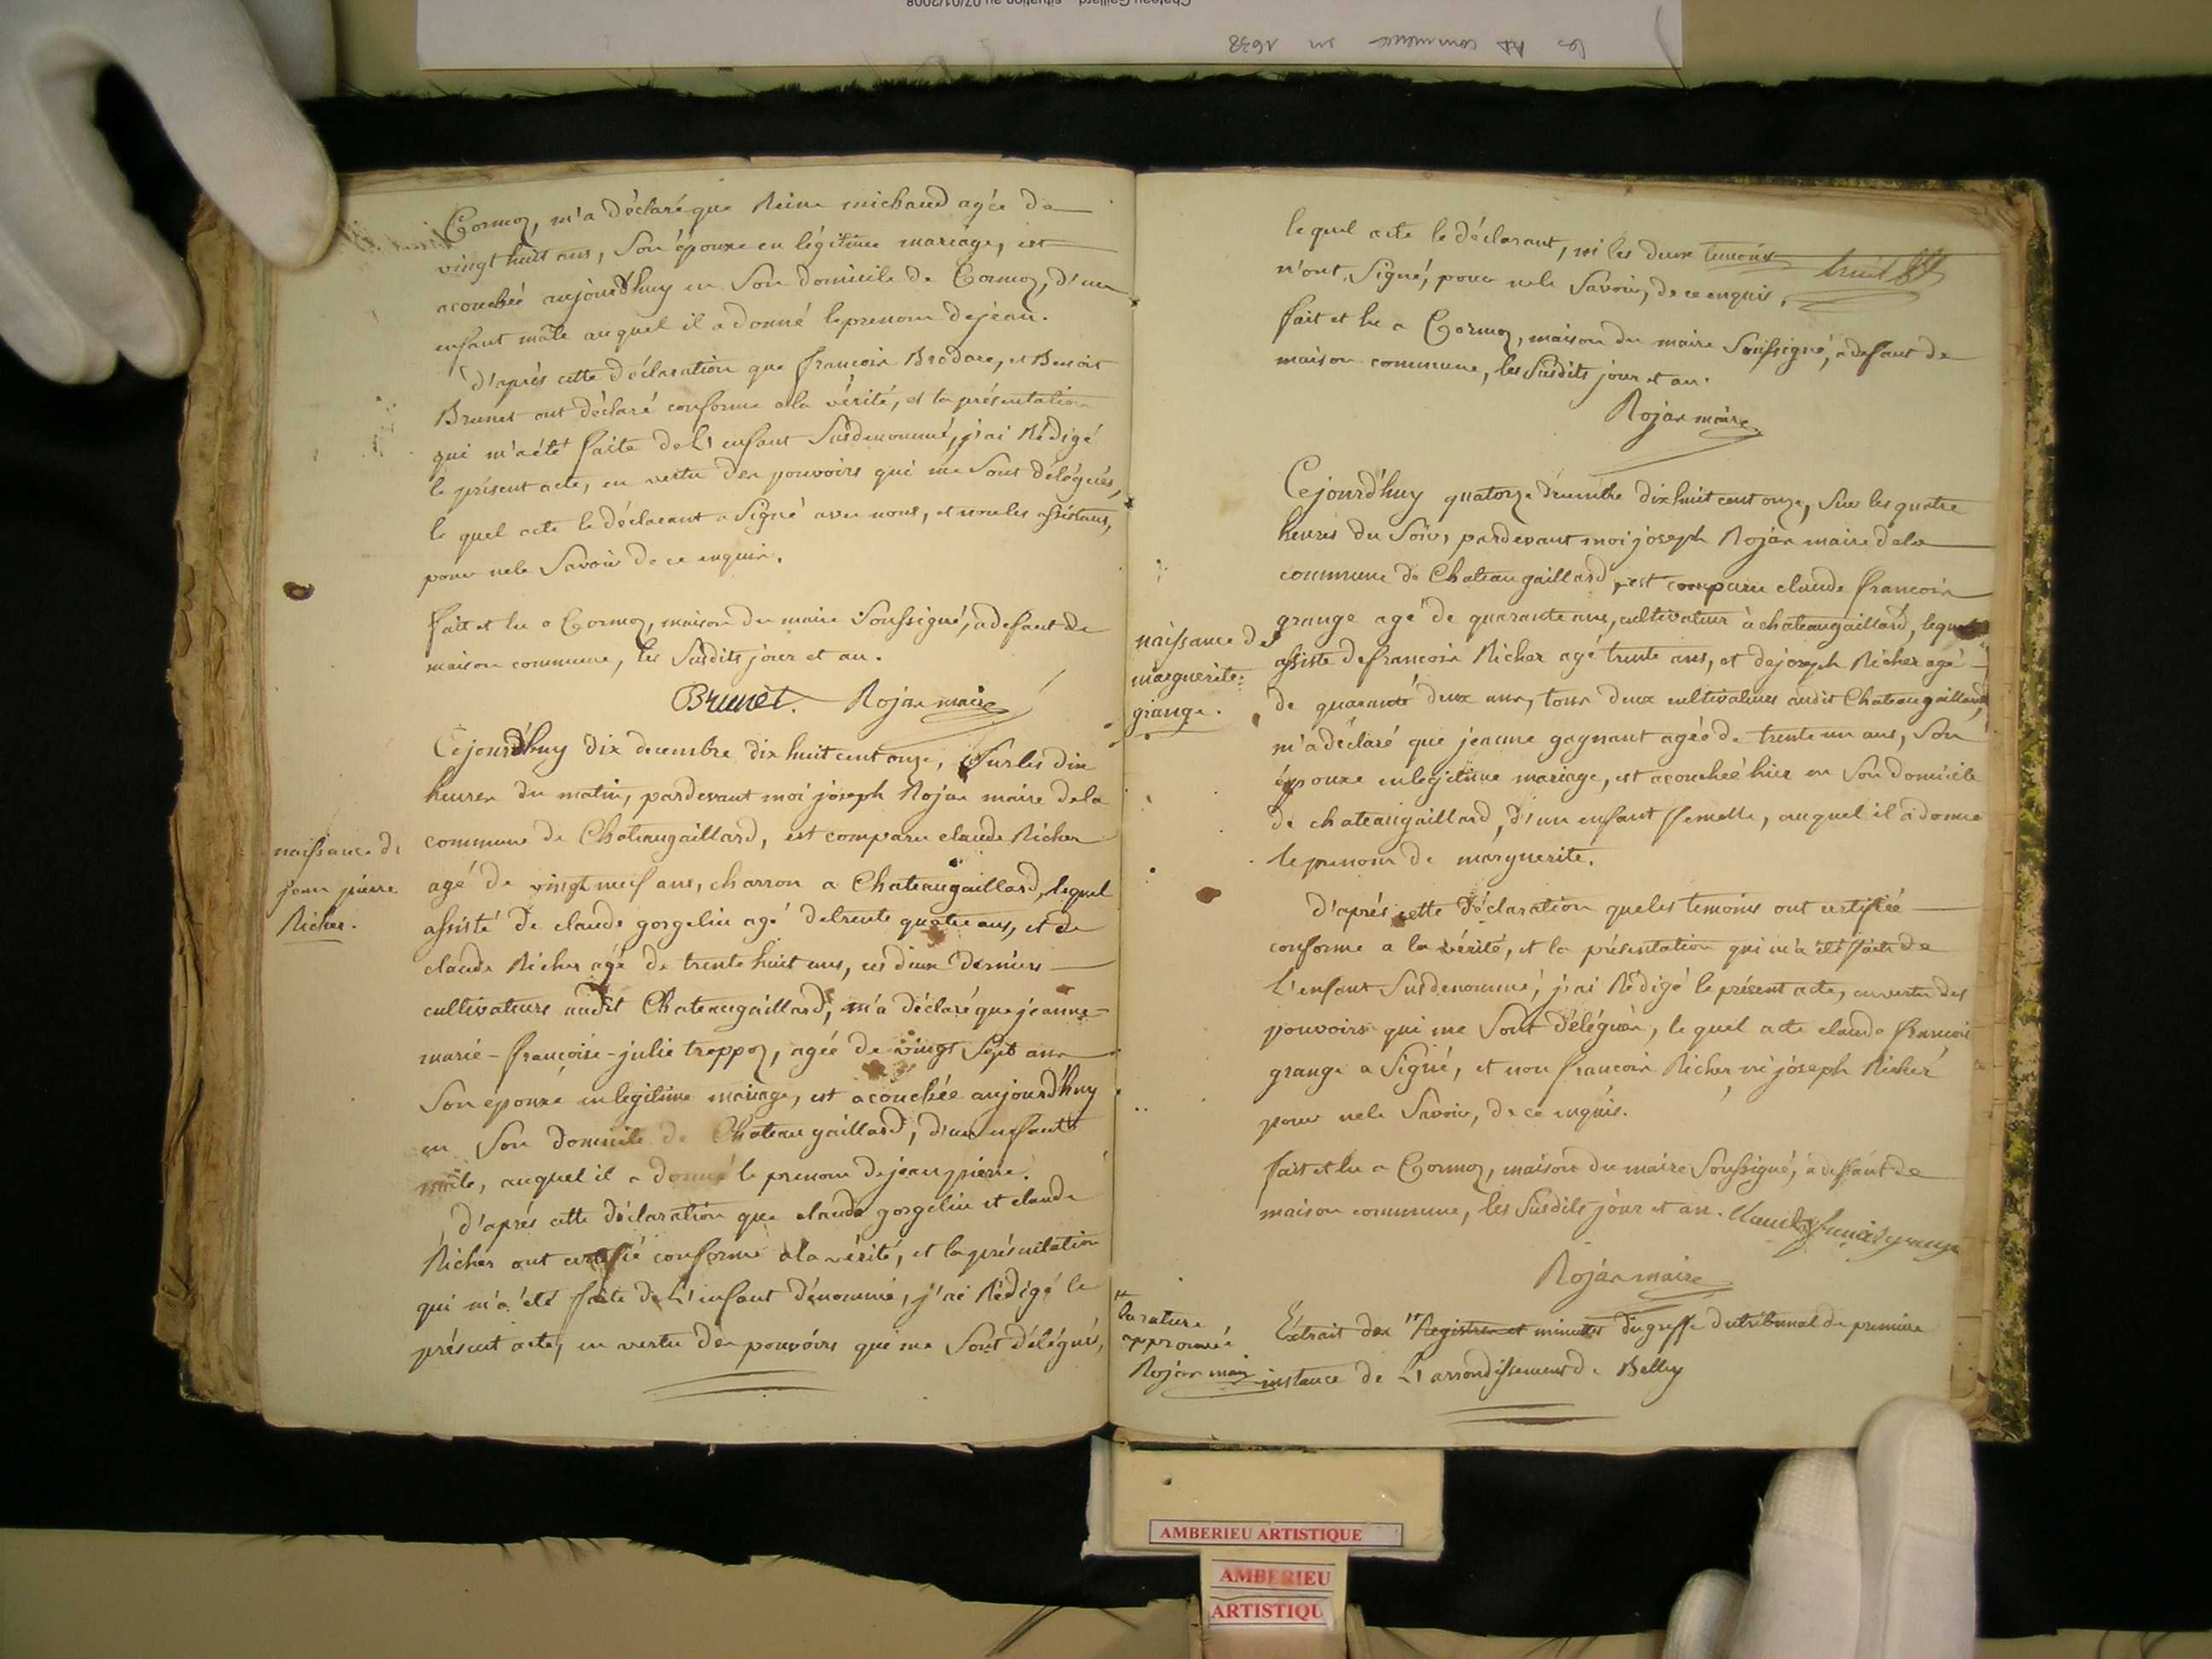 Chateau Gaillard - situation au 07/01/2008
les AD commence en 1638
Cormoz, m'a déclaré que Reine michaud agée de
vingt huit ans, Son épouse en légitime mariage, est
acouchée aujourd'huy en Son domicile de Cormoz, d'un
enfant mâle auquel il a donné le prenom de jean.
d'après cette déclaration que francois Brodare, et Benoit
Brunet ont déclaré conforme a la vérité, et la présentation
qui m'a été faite de L'enfant Susdenommé, j'ai Rédigé
le présent acte, en vertu des pouvoirs qui me Sont délégués,
le quel acte le déclarant a Signé avec nous, et non les assistans,
pour ne le Savoir de ce enquis.
fait et lu a Cormoz, maison du maire Soussigné, a defaut de
maison commune, les Susdits jour et an.
Brunet. Rojas maire
Cejourd'huy dix decembre dix huit cent onze, Sur les dix
heures du matin, pardevant moi joseph Rojas maire de la
naissance de
jean pierre
Richer.
commune de Chateaugaillard, est comparu claude Richer
agé de vingt neuf ans, charron a Chateaugaillard, lequel
assisté de claude gorgelin agé de trente quatre ans, et de
claude Richer agé de trente huit ans, ces deux derniers
cultivateurs audit Chateaugaillard, m'a déclaré que jeanne
marie-françoise-julie treppoz, agée de vingt Sept ans
Son épouse en legitime mariage, est acouchée aujourd'huy
en Son domicile de Chateaugaillard, d'un enfant
mâle, auquel il a donné le prenom de jean pierre.
d'après cette déclaration que claude gorgelin et claude
Richer ont certifié conforme a la vérité, et la présentation
qui m'a été faite de L'enfant dénommé, j'ai Rédigé le
présent acte, en vertu des pouvoirs qui me Sont délégué,
le quel acte le déclarant, ni les deux temoins
n'ont Signé, pour ne le Savoir, de ce enquis.
fait et lu a Cormoz, maison du maire Soussigné, a defaut de
maison commune, les Susdits jour et an.
Rojas maire
Cejourd'huy quatorze décembre dix huit cent onze, Sur les quatre
heures du Soir, pardevant moi joseph Rojas maire de la
commune de Chateaugaillard, est comparu claude francois
naissance de
marguerite
grange.
grange agé de quarante ans, cultivateur à chateaugaillard, lequel
assisté de francois Richer agé trente ans, et de joseph Richer agé
de quarante deux ans, tous deux cultivateurs audit Chateaugaillard,
m'a déclaré que jeanne gagnant agée de trente un ans, Son
épouse en legitime mariage, est acouchée hier en Son domicile
de chateaugaillard, d'un enfant femelle, auquel il a donné
le prenom de marguerite.
d'après cette déclaration que les temoins ont certifiée
conforme a la vérité, et la présentation qui m'a été faite de
L'enfant Susdenommé, j'ai Rédigé le présent acte, en vertu des
pouvoirs qui me Sont délégués, le quel acte claude francois
grange a Signé, et non francois Richer ni joseph Richer
pour ne le Savoir, de ce enquis.
fait et lu a Cormoz, maison du maire Soussigné, a deffaut de
maison commune, les Susdits jour et an. Claude francois grange
Rojas maire
la rature
approuvée
Rojas maire
Extrait des Registres et minutes du greffe du tribunal de premiere
instance de L'arrondissement de Belley
AMBERIEU ARTISTIQUE
AMBERIEU
ARTISTIQU